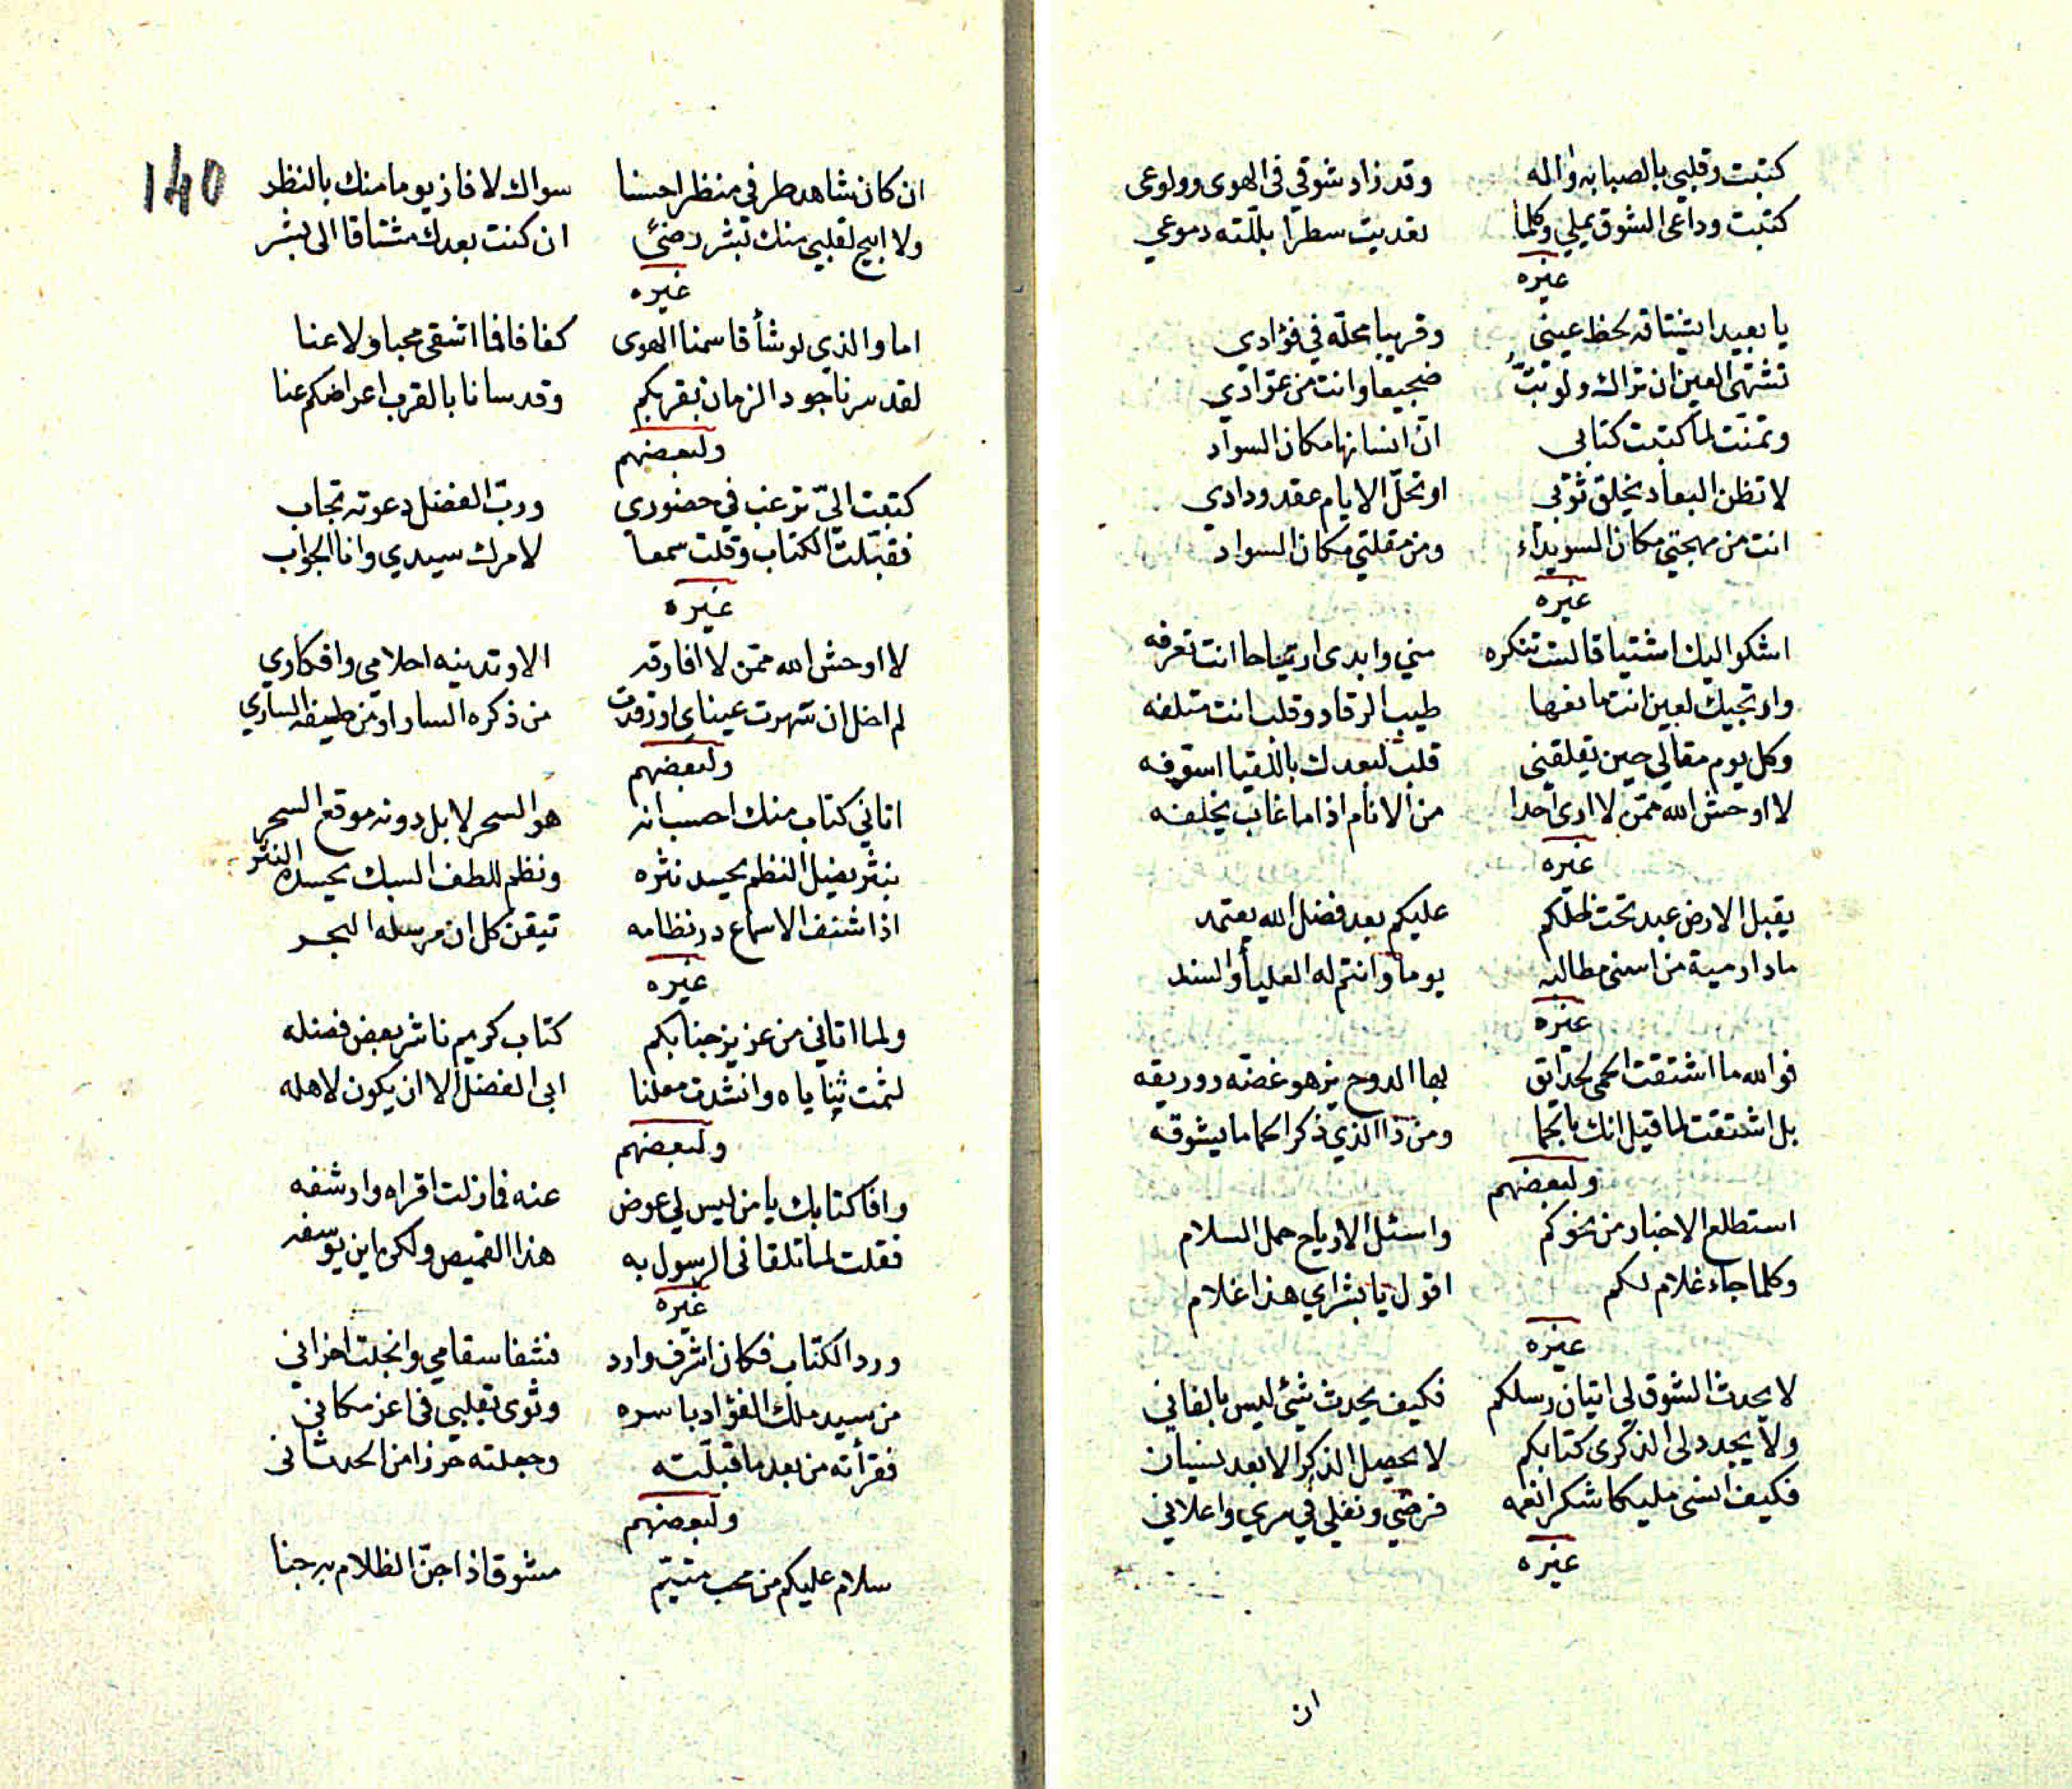 كتبت وقلبي بالصبابة واله وقد زاد شوقي في الهوى وولوعي
كتبت وداعى الشوق يملي وكلما تعديت سطرا بللته دموعي
غيره
يا بعيدا يشتاقه لحظ عيني وقريبا محلّه في فؤادي
تشتهى العين ان تراك ولو تبتُّ ضجيعا وانت من عوّادي
وتمنّت لما كتبت كتابي انّ انسانها مكان السواد
لا تظن البعاد يخلق ثوبي او تحلّ الايام عقد ودادي
انت من مهجتي مكان السويداء ومن مقلتي مكان السواد
غيره
اشكوا اليك اشتياقا لست تنكره مني وابدى ارتياحا انت تعرفه
وارتجيك لعين انت مانعها طيب الرقاد وقلب انت متلفه
وكل يوم مقالي حين يقلقني قلب لبعدك باللقيا اسوّفه
لا اوحش الله ممّن لا ارى احدا من الانام اذا ما غاب يخلفه
غيره
يقبل الارض عبد تحت ظلّكم عليكم بعد فضل الله يعتمد
ما دار مية من اسنى مطالبه يوما وانتم له العليأ والسند
غيره
فوالله ما اشتقت الحمى لحدايق بها الدوح يزهو غصنه ووريقه
بل اشتقت لما قيل انك بالحما ومن ذا الذي ذكر الحما ما يشوقه
ولبعضهم
استطلع الاخبار من نحوكم واسئل الارياح حمل السلام
وكلما جاء غلام لكم اقول يا بشراي هذا غلام
غيره
لا يحدث الشوق لى اتيان رسلكم فكيف يحدث شئ ليس بالفاني
ولا يجدد لى الذكرى كتابكم لا يحصل الذكر الا بعد نسيان
فكيف انسى مليكا شكر انعمه فرضي ونفلي في سري واعلاني
غيره
ان
140
ان كان شاهد طرفي منظرا حسنا سواك لا فاز يوما منك بالنظر
ولا ابيح لقلبي منك تبشر رضئ ان كنت بعدك مشتاقا الى بشر
غيره
اما والذي لو شأ قاسمنا الهوى كفافا فما اشقى محبا ولا عنا
لقد سرنا جود الزمان بقربكم وقد سانا بالقرب اعراضكم عنا
ولبعضهم
كتبت اليّ ترغب في حضوري وربّ الفضل دعوته تجاب
فقبّلت الكتاب وقلت سمعا لامرك سيدي وانا الجواب
غيره
لا اوحش الله ممّن لا افارقه الا وتدينه احلامي وافكاري
لم اخل ان سهرت عيناي او رقدت من ذكره السار او من طيفه الساري
ولبعضهم
اتاني كتاب منك احسب انه هو السحر لا بل دونه موقع السحر
بنثر يضيل النظم يحسد نثره ونظم للطف السبك يحسده النثر
اذا شنف الاسماع در نظامه تيقن كل ان مرسله البحر
غيره
ولما اتاني من عزيز جنابكم كتاب كريم ناشر بعض فضله
لثمت ثناياه وانشدت معلنا ابى الفضل الا ان يكون لاهله
ولبعضهم
وافا كتابك يا من ليس لي عوض عنه فما زلت اقراه وارشفه
فقلت لما تلقانى الرسول به هذا القميص ولكن اين يوسفه
غيره
ورد الكتاب فكان اشرف وارد فشفا سقامي وانجلت احزاني
من سيد ملك الفؤاد باسره وثوى بقلبي فى اعز مكاني
فقرأته من بعد ما قبلّته وجعلته حرزا من الحدثانى
ولبعضهم
سلام عليكم من محب متيّم مشوق اذا جنّ الظلام به جنا